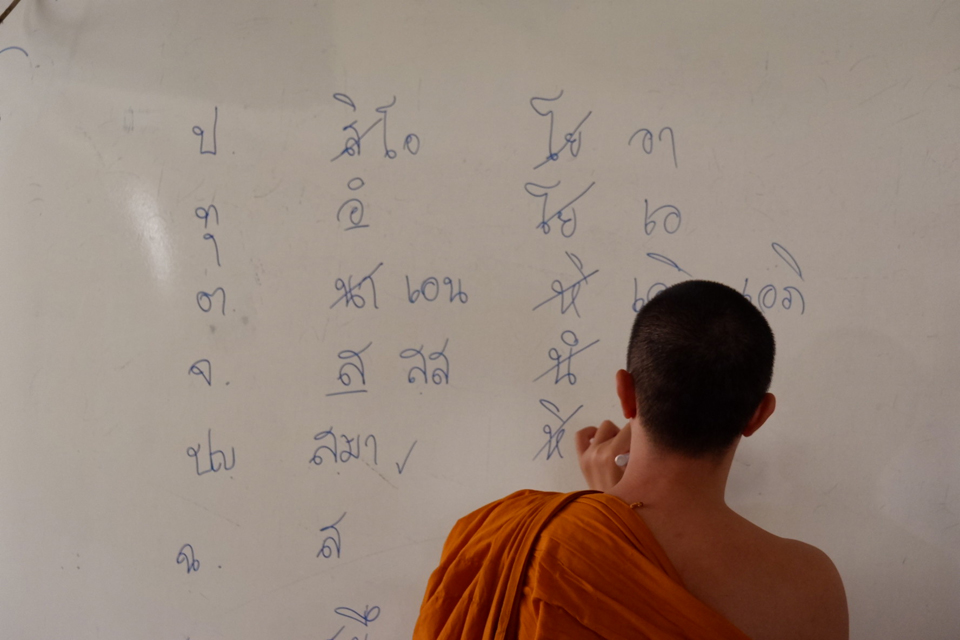 ป. สิ โอ โย อา
ทุ อํ โย เอ
ต. นา เอน หิ เอภิ
จ. ส สฺส นํ
ปญฺ สฺมา หิ
ฉ. ส